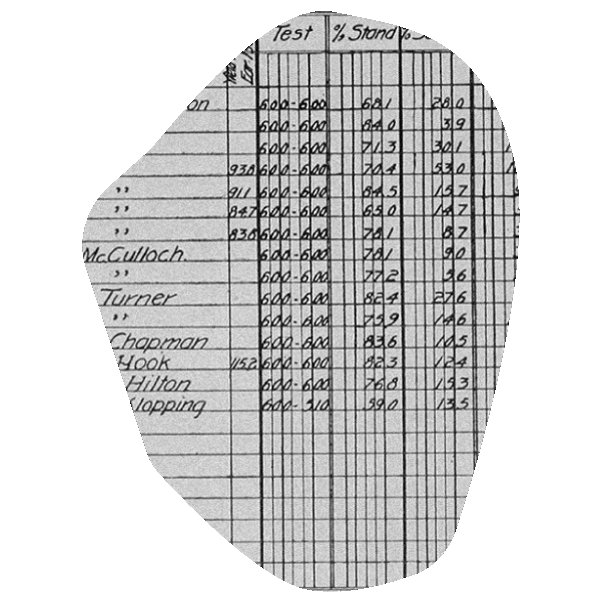 Test % Stand
on 600-600 68.1 28.0
600-600 84.0 3.9
600-600 71.3 30.1
93.8 600-600 70.4 53.0
" 91.1 600-600 84.5 15.7
" 84.7 600-600 65.0 14.7
" 83.8 600-600 78.1 8.7
McCulloch. 600-600 78.1 9.0
" 600-600 77.2 5.6
Turner 600-600 82.4 27.6
" 600-600 75.9 14.6
Chapman 600-600 83.6 10.5
Hook 115.2 600-600 82.3 12.4
Hilton 600-600 76.8 15.3
Klopping 600-510 59.0 13.5